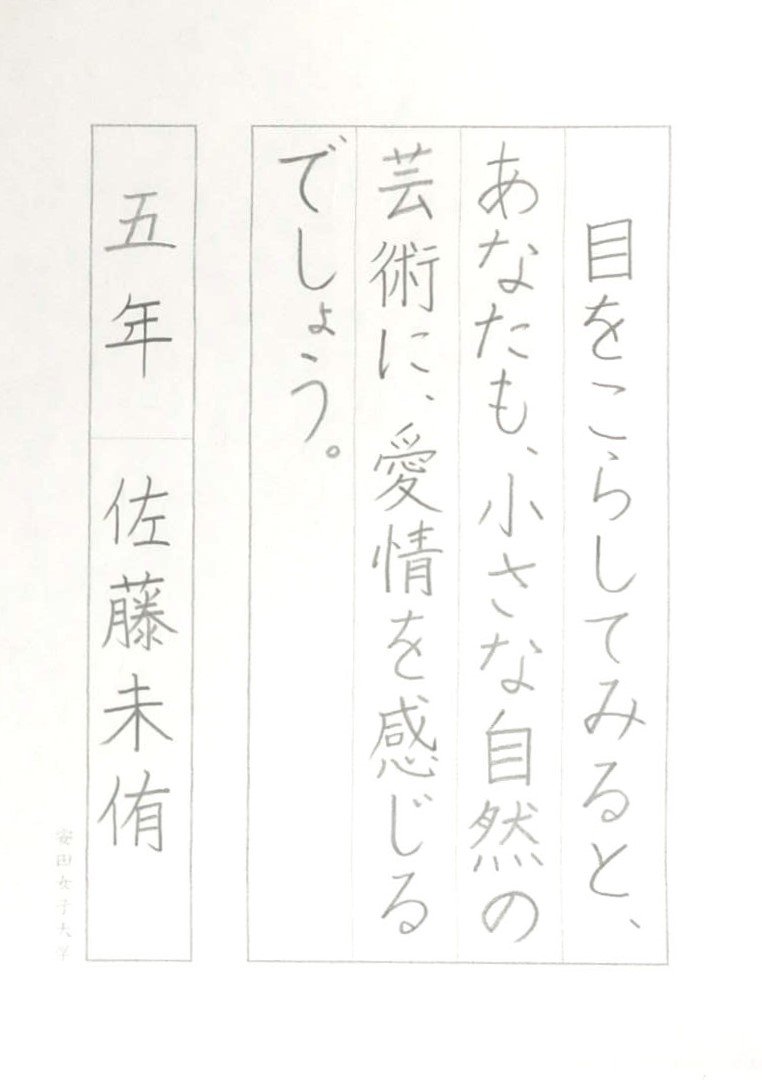 目をこらしてみると、
あなたも、小さな自然の
芸術に、愛情を感じる
でしょう。
五年 佐藤未侑
安田女子大学